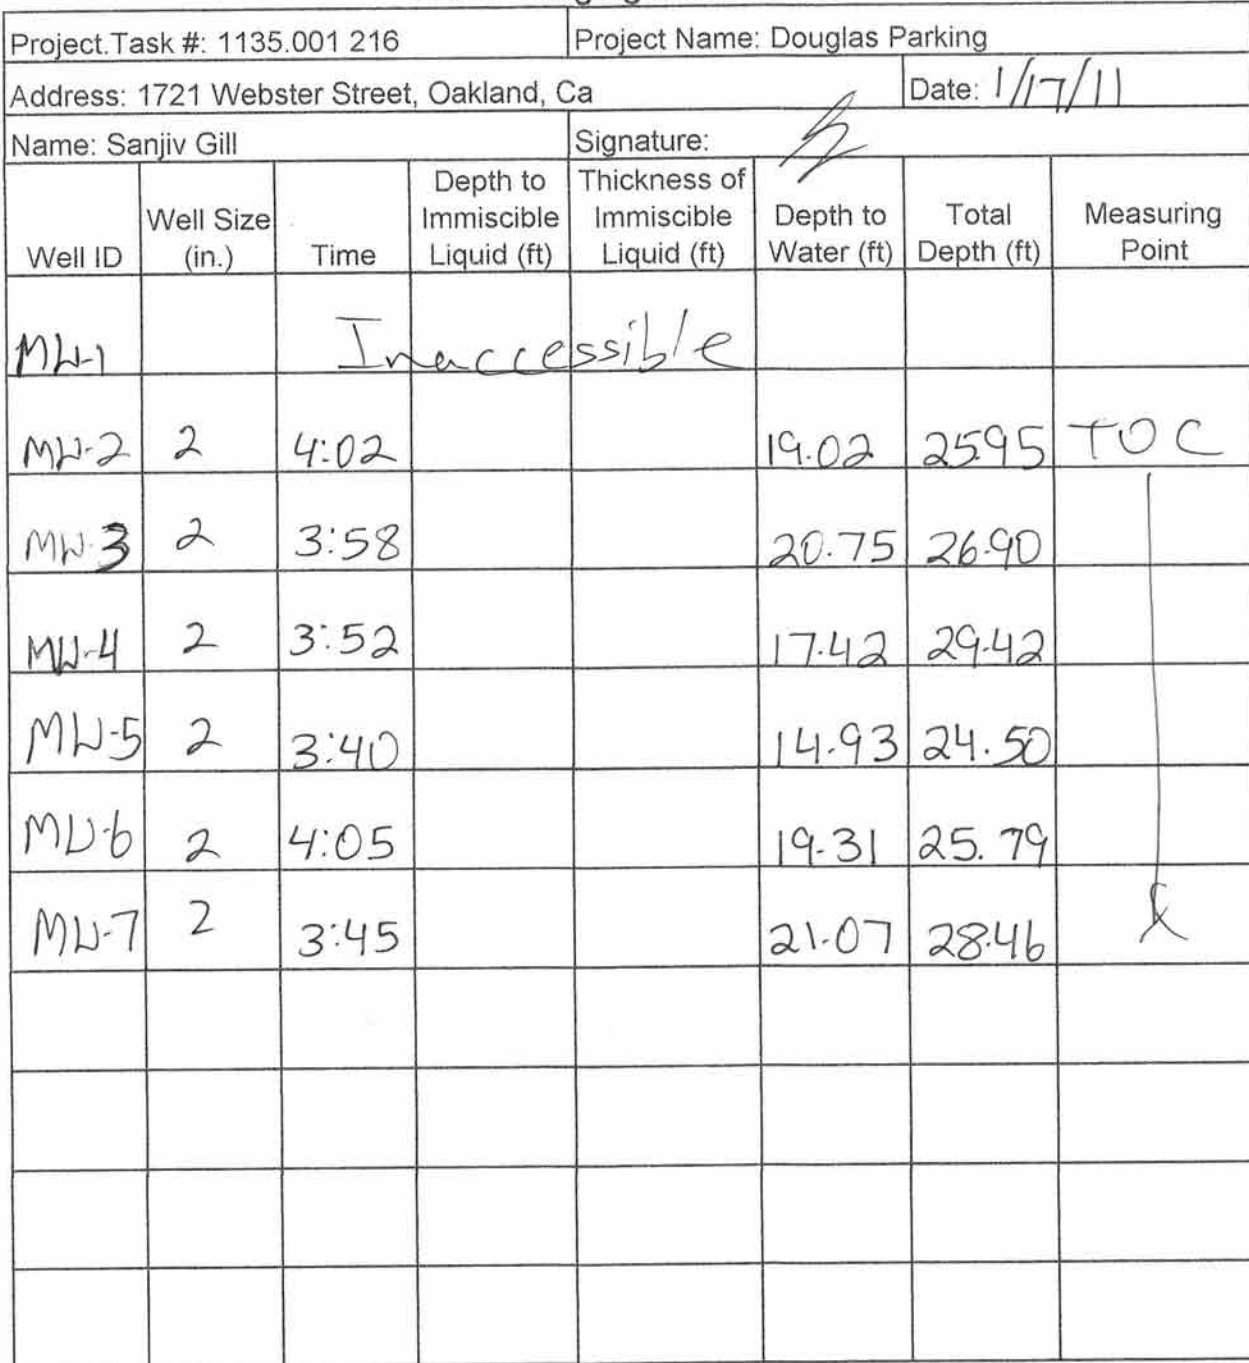 Project.Task #: 1135.001 216 Project Name: Douglas Parking
Address: 1721 Webster Street, Oakland, Ca Date: 1/17/11
Name: Sanjiv Gill Signature:
Well ID Well Size (in.) Time Depth to Immiscible Liquid (ft) Thickness of Immiscible Liquid (ft) Depth to Water (ft) Total Depth (ft) Measuring Point
MW-1 Inaccessible
MW-2 2 4:02 19.02 25.95 TOC
MW-3 2 3:58 20.75 26.90
MW-4 2 3:52 17.42 29.42
MW-5 2 3:40 14.93 24.50
MW-6 2 4:05 19.31 25.79
MW-7 2 3:45 21.07 28.46